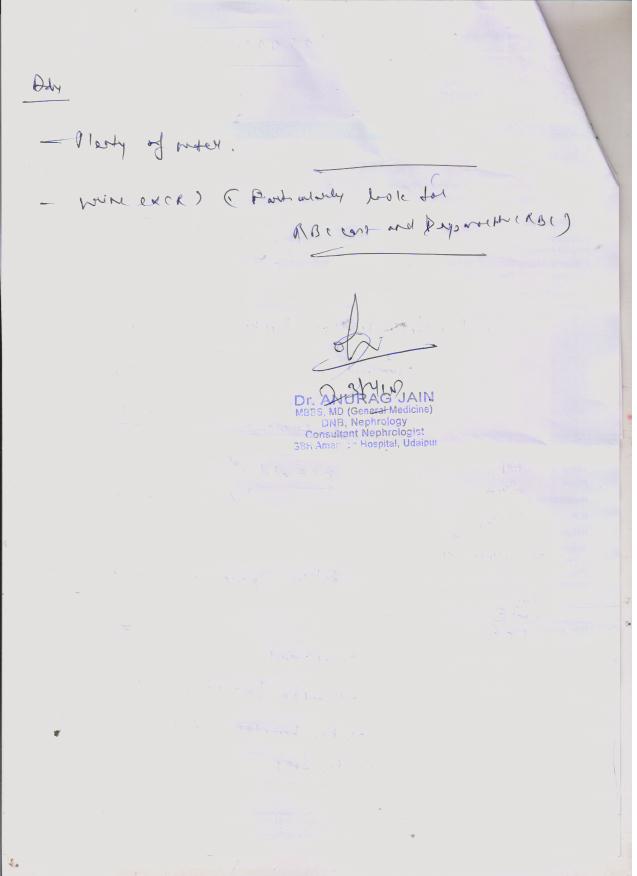 Adv
— Plenty of water.
- urine ex(R) (Particularly look for
RBC cast and Dysmorphic RBC)
Dr. ANURAG JAIN
MBBS, MD (General Medicine)
DNB, Nephrology
Consultant Nephrologist
Hospital, Udaipur